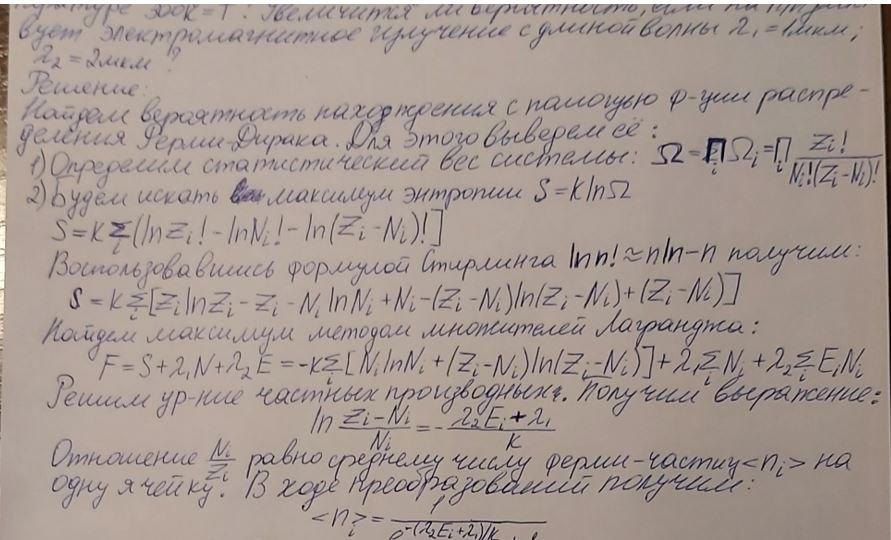 300K = T. Увеличится ли вероятность, если на
вует электромагнитное излучение с длиной волны λ₁ = 1мкм;
λ₂ = 2мкм?
Решение:
Найдем вероятность нахождения с помощью ф-ции распре-
деления Ферми-Дирака. Для этого выведем её:
1) Определим статистический вес системы: Ω = ∏ᵢ Ωᵢ = ∏ᵢ Zᵢ!/(Nᵢ!(Zᵢ-Nᵢ)!)
2) Будем искать максимум энтропии S = k lnΩ
S = k Σᵢ(lnZᵢ! - lnNᵢ! - ln(Zᵢ-Nᵢ)!]
Воспользовавшись формулой Стирлинга ln n! ≈ n ln - n получим:
S = k Σᵢ[Zᵢ lnZᵢ - Zᵢ - Nᵢ lnNᵢ + Nᵢ - (Zᵢ-Nᵢ)ln(Zᵢ-Nᵢ) + (Zᵢ-Nᵢ)]
Найдем максимум методом множителей Лагранджа:
F = S + λ₁N + λ₂E = -k Σᵢ[Nᵢ lnNᵢ + (Zᵢ-Nᵢ)ln(Zᵢ-Nᵢ)] + λ₁ Σᵢ Nᵢ + λ₂ Σᵢ EᵢNᵢ
Решим ур-ние частных производных. Получим выражение:
ln (Zᵢ-Nᵢ)/Nᵢ = - (λ₂Eᵢ + λ₁)/k
Отношение Nᵢ/Zᵢ равно среднему числу ферми-частиц <nᵢ> на
одну ячейку. В ходе преобразований получим:
<n>ᵢ = 1/(e^(-(λ₂Eᵢ+λ₁)/k) + 1)